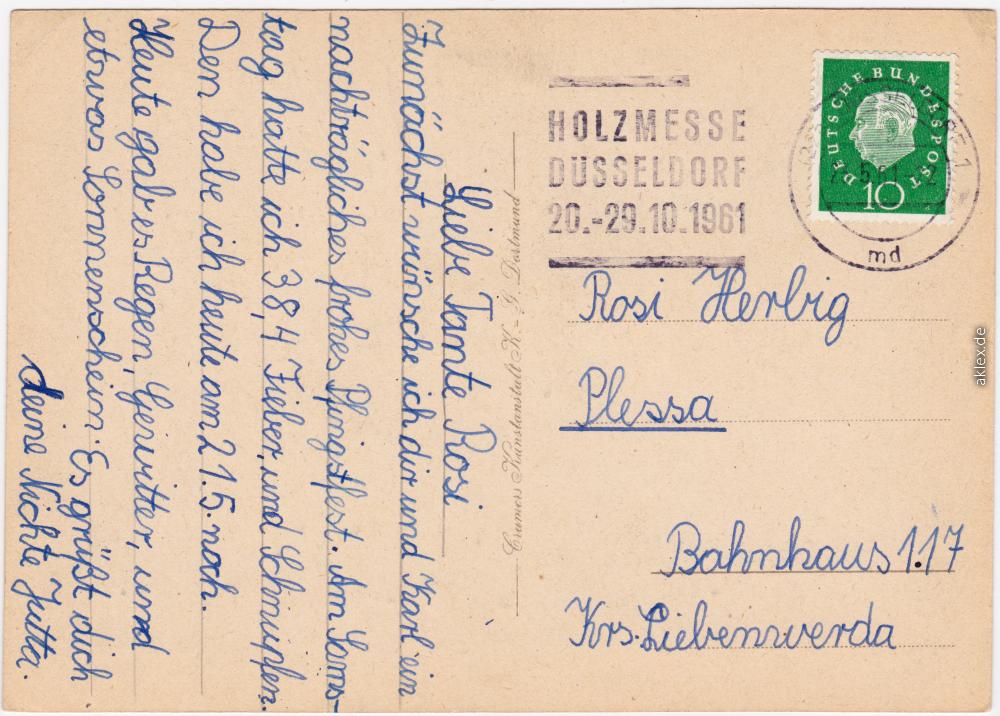 Liebe Tante Rosi
Zunächst wünsche ich dir und Karl ein
nachträgliches frohes Pfingstfest. Am Sams-
tag hatte ich 38,4 Fieber, und Schnupfen.
Den habe ich heute am 21.5. noch.
Heute gab es Regen, Gewitter, und
etwas Sonnenschein. Es grüßt dich
deine Nichte Jutta.
Cramers Kunstanstalt K.-G. Dortmund
HOLZMESSE
DÜSSELDORF
20.-29.10.1961
DEUTSCHE BUNDESPOST
10
md
Rosi Herbig
Plessa
Bahnhaus 117
Krs. Liebenwerda
aklex.de